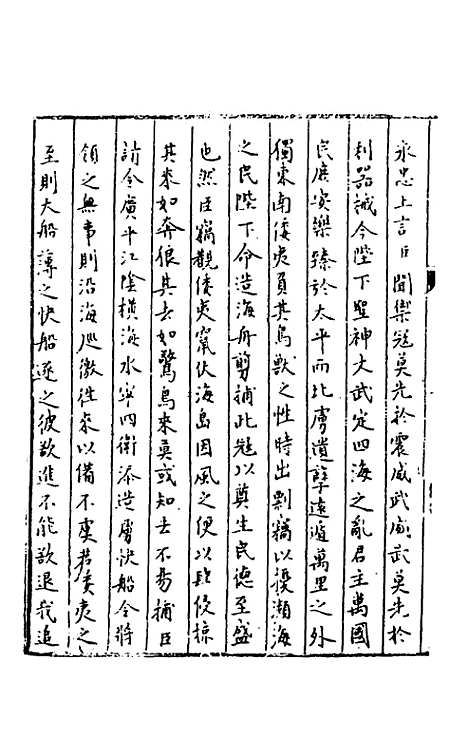 永忠上言臣聞禦寇莫先於震威武威武莫先於
利器械今陛下聖神大武定四海之亂君主萬國
民庶安樂臻於太平而北虜遺孽遠遁萬里之外
獨東南倭夷負其鳥獸之性時出剽竊以擾瀕海
之民陛下命造海舟剪捕此寇以奠生民德至盛
也然臣竊觀倭夷竄伏海島因風之便以肆侵掠
其來如奔狼其去如驚鳥來莫或知去不易捕臣
請令廣平江陰橫海水軍四衛添造虜快船令將
領之無事則沿海巡徼往來以備不虞若倭夷之
至則大船薄之快船逐之彼欲進不能欲退我追